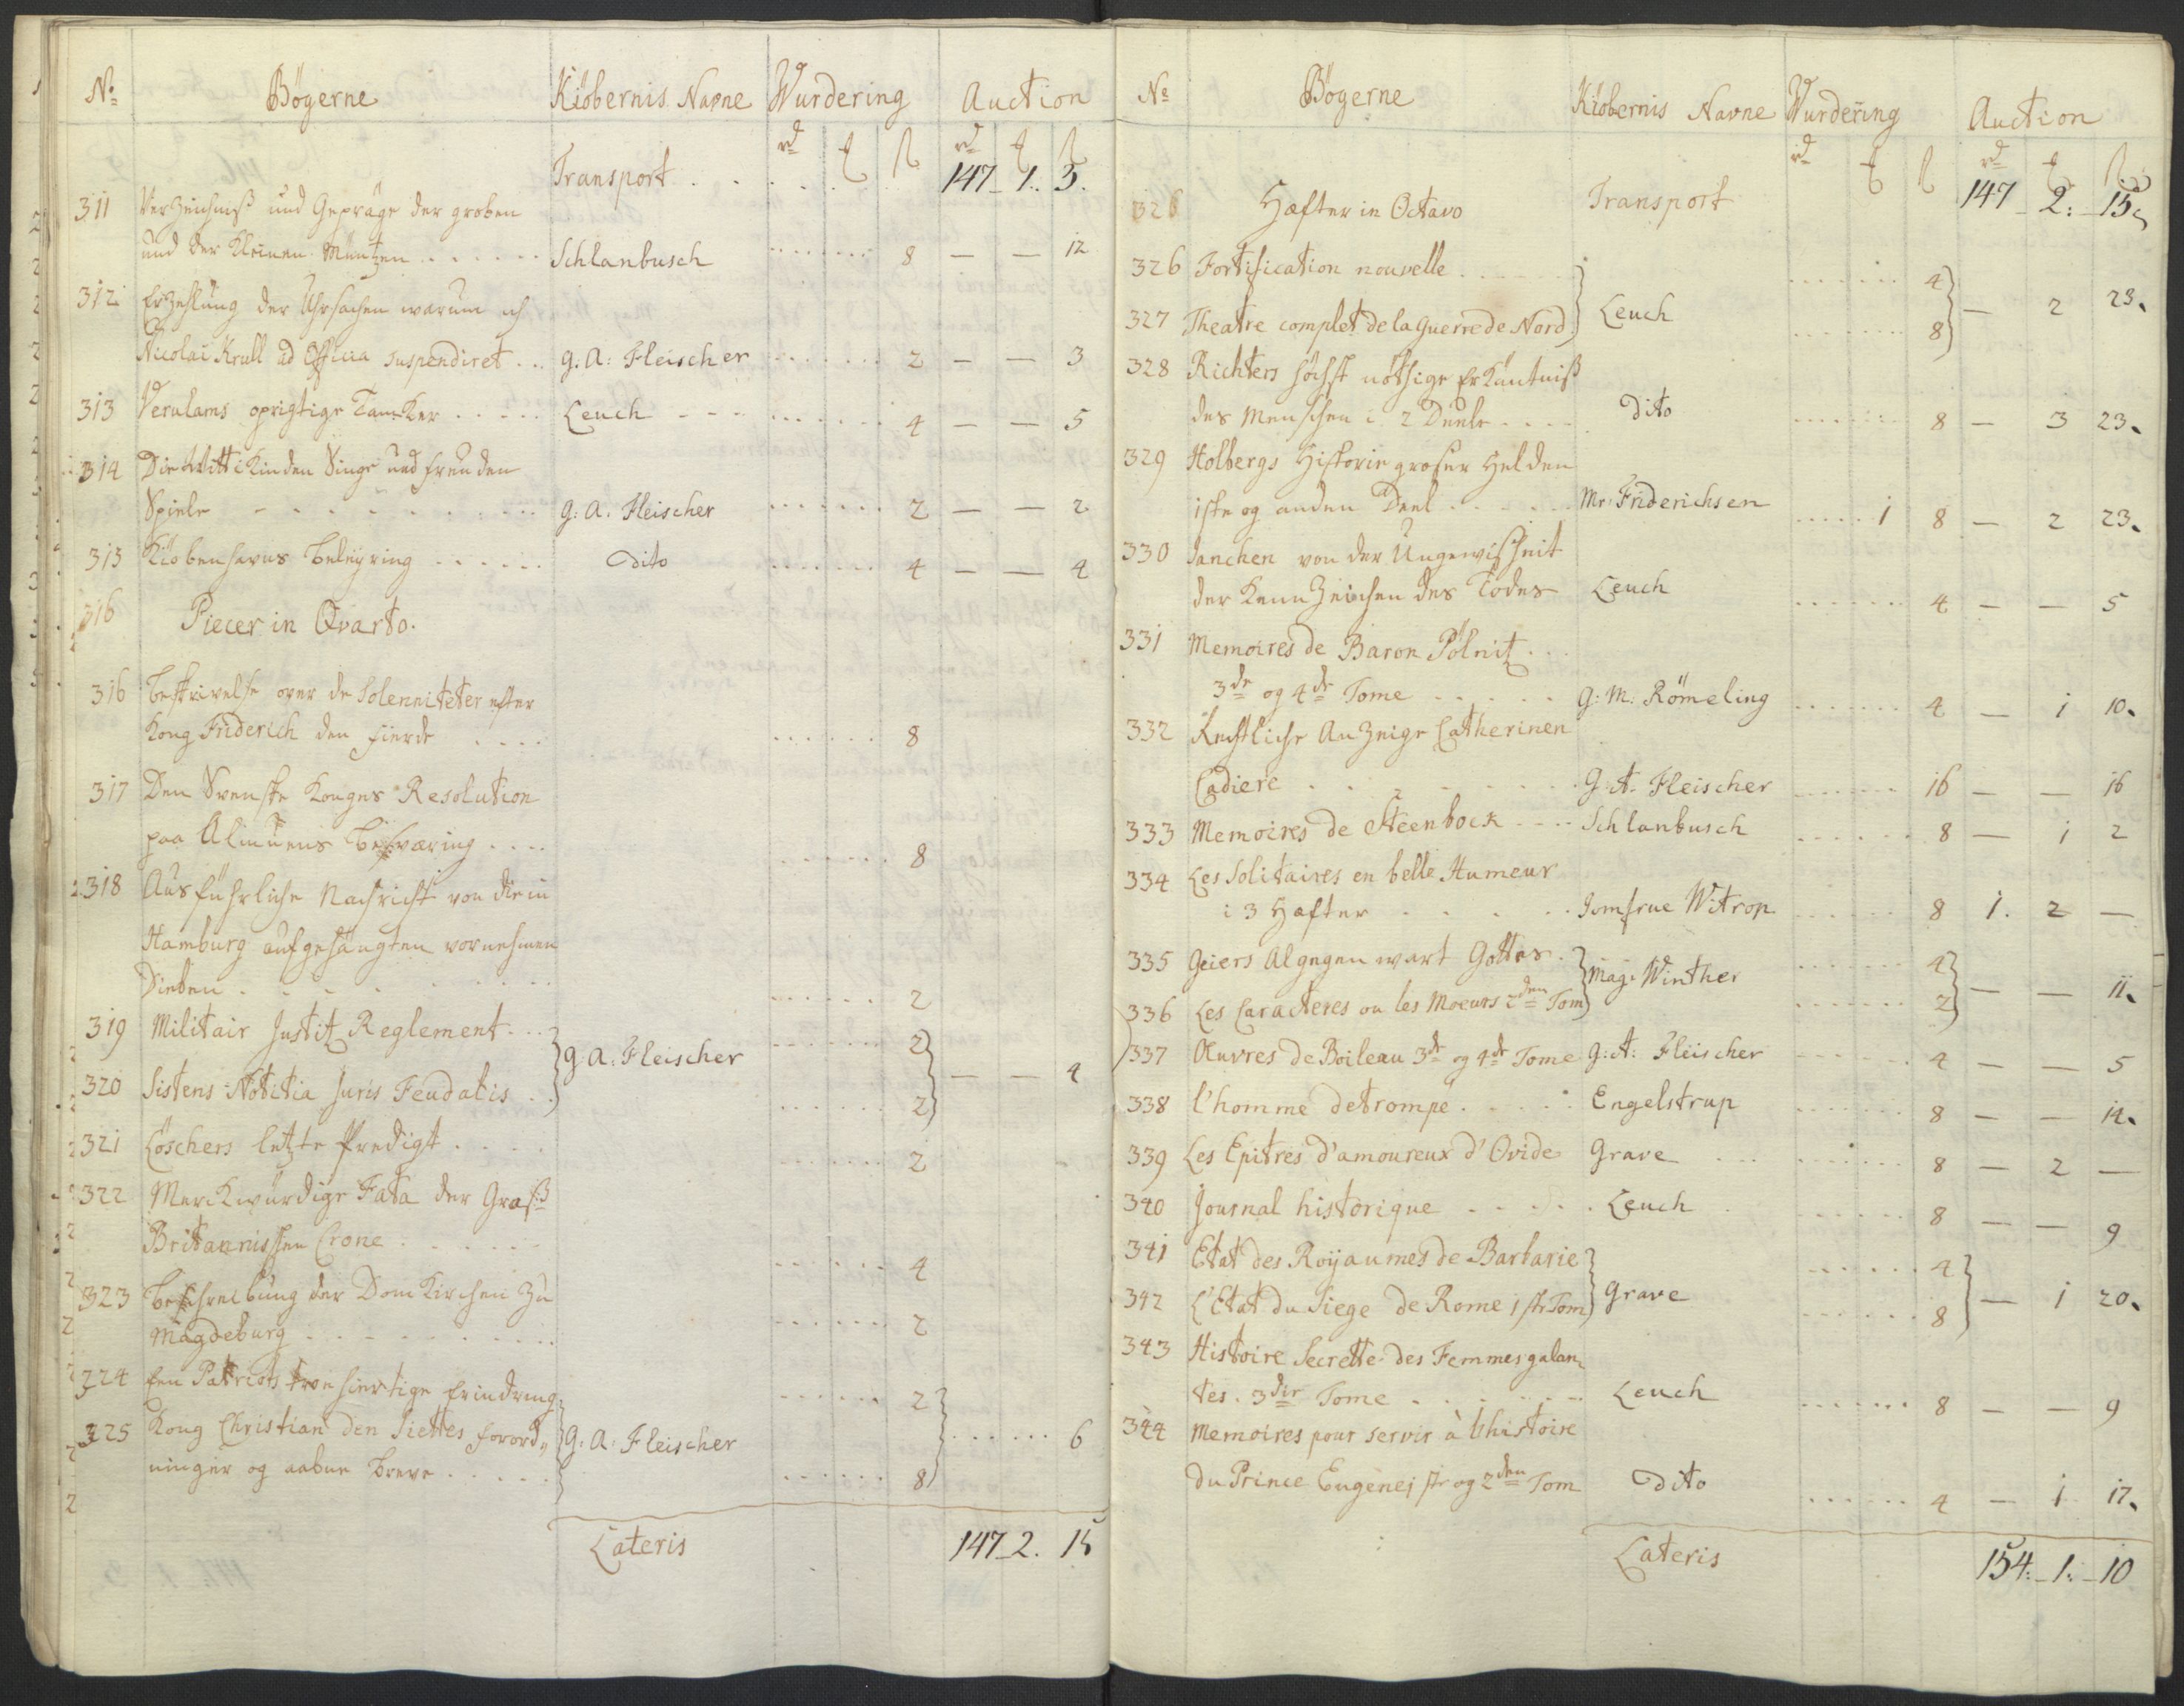 No Bögerne Kiöbernis Navne Wurdering Auction
rd rd
Transport . . . . . 147 - 1. 3.
311 Verzeichniß und Gepräge der groben
und der Kleinen Müntzen . . . . . . Schlanbusch . . . . . . 8 — — 12
312 Erzehlung der Uhrsachen warum ich
Nicolai Krull ad Officia suspendiret . . G. A: Fleischer . . . . . . 2 — — 3
313 Verulams oprigtige Tanker . . . . . Leuch - - - . . . . . . 4 — — 5
314 Die Wittikinden Singe und freuden
Spiele - - - - - - - - G: A. Fleischer . . . . . . 2 — — 2
315 Kiöbenhavns beleyring . . . . . . Dito . . . . . . 4 — — 4
316 Piecer in Qvarto.
316 Beskrivelse over de Solenniteter efter
Kong Friderich den fierde . . . . . . . . . . 8
317 Den Svenske Konges Resolution
paa Almuens besværing . . . . . . . . . . 8
318 Ausführliche Nachricht von die in
Hamburg aufgehängten vornehmen
Dieben . . . . . . . . . . . . . 2
319 Militair Justitz Reglement . . . . . . . . . 2
G. A: Fleischer — — 4
320 Sistens Notitia Juris Feudalis . . . . . . . . 2
321 Löschers letzte Predigt . . . . . . . . . . 2
322 Merckwürdige Fata der Groß
Britannischen Crone . . . . . . . . . . . . 4
323 Beschreibung der Dom Kirchen zu
Magdeburg . . . . . . . . . . . . . . 2
324 Een Patriots troehiertige Erindring . . . . . . 2
325 Kong Christian den Siettes forord„ G. A: Fleischer . . . . . . 6
ninger og aabne breve . . . . . . . . . . . 8
Lateris 147 - 2. 15
No Bögerne Kiöbernis Navne Vurdering Auction
rd rd
326 Hæfter in Octavo Transport 147 - 2: - 15
326 Fortification nouvelle . . . . . . . . . . . 4
Leuch — 2 23.
327 Theatre complet de la Guerre de Nord . . . . . . 8
328 Richters höchst nöthige Erkäntniß
des Menschen i 2 Deele . . . . Dito . . . . . . 8 — 3 23.
329 Holbergs Historie großer Helden
iste og anden Deel . . . . . Mr: Friderichsen . . . . . 1 8 — 2 23.
330 Janchen von der Ungewißheit
der Kennzeichen des Todes Leuch . . . . . . 4 — — 5
331 Memoires de Baron Pölnitz . .
3de og 4de Tome . . . . . G: M: Römeling . . . . . . 4 — 1 10.
332 Rechtliche Anzeige Catherinen
Cadiere . . . . . . . . G: A. Fleischer . . . . . . 16 — — 16
333 Memoires de Steenbock . . . . Schlanbusch . . . . . . 8 — 1 2
334 Les Solitaires en belle Humeur
i 3 Hæfter . . . . . Jomfrue Witrop . . . . . . 8 1. 2 —
335 Geiers Algegenwart Gottes . . . . . . . 4
Mag: Winther — — 11.
336 Les Caracteres ou les Moeurs 2den Tom . . . . . . 2
337 Œuvres de Boileau 3de og 4de Tome G: A: Fleischer . . . . . . 4 — — 5
338 l'homme detrompe . . . . . Engelstrup . . . . . . 8 — — 14.
339 Les Epitres d'amoureux d'Ovide Grave . . . . . . . . . 8 — 2 —
340 Journal historique . . . . . Leuch . . . . . . . 8 — — 9
341 Etat des Royaumes de Barbarie . . . . . . 4
Grave — 1 20.
342 L'Etat du Siege de Rome 1ste Tom . . . . . . 8
343 Histoire Secrette des Femmes galan„
tes. 3die Tome . . . . . . Leuch . . . . . . 8 — — 9
344 Memoires pour servir à l'histoire
du Prince Eugene 1ste og 2den Tom Dito . . . . . . 4 — 1 17.
Lateris 154: - 1: - 10